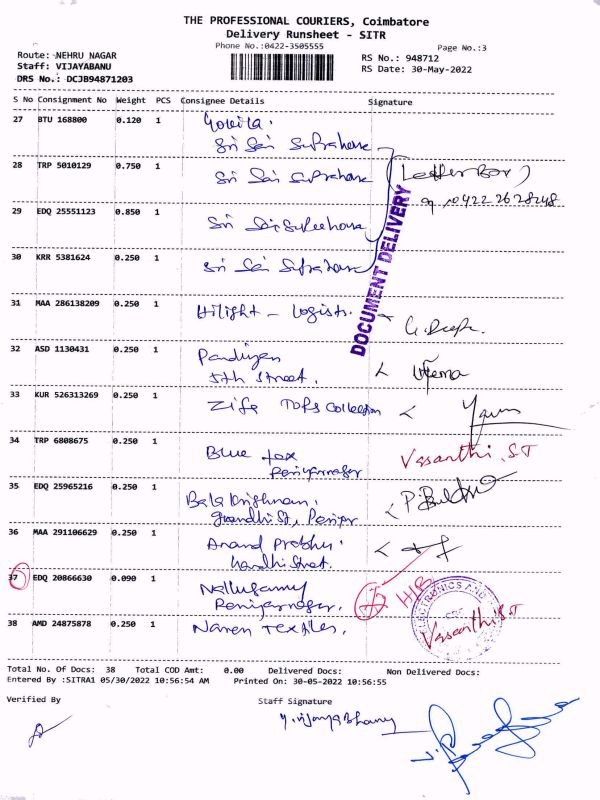 THE PROFESSIONAL COURIERS, Coimbatore
Delivery Runsheet - SITR
Phone No.:0422-3505555
Page No.:3
Route: NEHRU NAGAR
Staff: VIJAYABANU
DRS No.: DCJB94871203
RS No.: 948712
RS Date: 30-May-2022
S No Consignment No Weight PCS Consignee Details Signature
27 BTU 168800 0.120 1
Sri Sai Suprahana
28 TRP 5010129 0.750 1 Sri Sai Suprahana (Letter Box)
29 EDQ 25551123 0.850 1 Sri Sai
30 KRR 5381624 0.250 1 Sri Sai
DOCUMENT DELIVERY
31 MAA 286138209 0.250 1 Hilight - Logists.
32 ASD 1130431 0.250 1 Pandiyan
5th Street. < Veema
33 KUR 526313269 0.250 1 Zife Tops Collection <
34 TRP 6808675 0.250 1 Blue fox Vasanthi.ST
Periyarnagar
35 EDQ 25965216 0.250 1 Bala Krishnan.
Gandhi St, Periyar
36 MAA 291106629 0.250 1 Anand Prabhu.
Gandhi Street.
37 EDQ 20866630 0.090 1 Nallusamy H/B
Periyarnagar.
38 AMD 24875878 0.250 1 Naren Textiles. Vasanthi ST
ELECTRONICS AND
Total No. Of Docs: 38 Total COD Amt: 0.00 Delivered Docs: Non Delivered Docs:
Entered By :SITRA1 05/30/2022 10:56:54 AM Printed On: 30-05-2022 10:56:55
Verified By Staff Signature
Y. Vijaya Bhanu